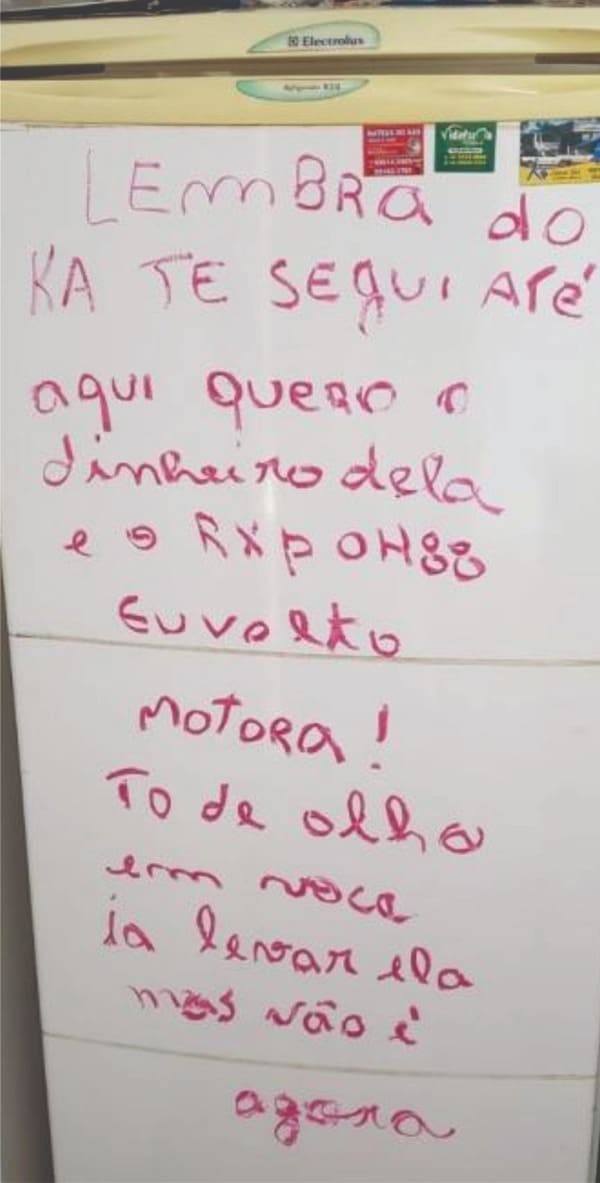 Electrolux
LEMBRA do
KA TE SEQUI ATÉ
aqui quero o
dinheiro dela
e o RXP OH88
EU volto
MOTORA!
To de olho
em voce
ia levar ela
mas não é
agora